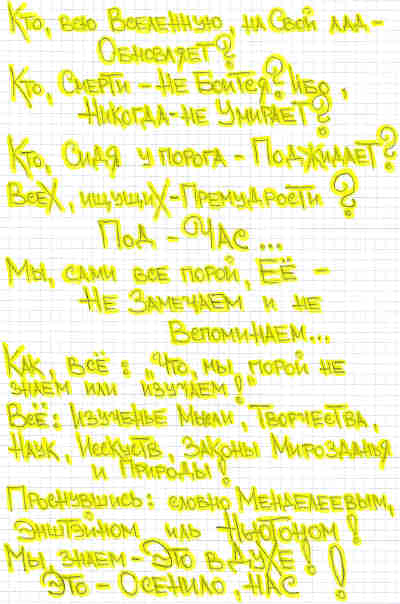 Кто, всю Вселенную, на Свой лад -
Обновляет?
Кто, Смерти - не Боится? Ибо,
Никогда - не Умирает?
Кто, Сидя у порога - Поджидает?
Всех, ищущих - Премудрости?
Под - Час...
Мы, сами все порой, Её -
Не Замечаем и не
Вспоминаем...
Как, всё: „Что, мы, порой не
знаем или изучаем!"
Всё: Изученье Мысли, Творчества,
Наук, Исскуств, Законы Мирозданья
и Природы!
Проснувшись: словно Менделеевым,
Энштэйном иль Ньютоном!
Мы, знаем - Это в Духе!
Это - Осенило, нас!